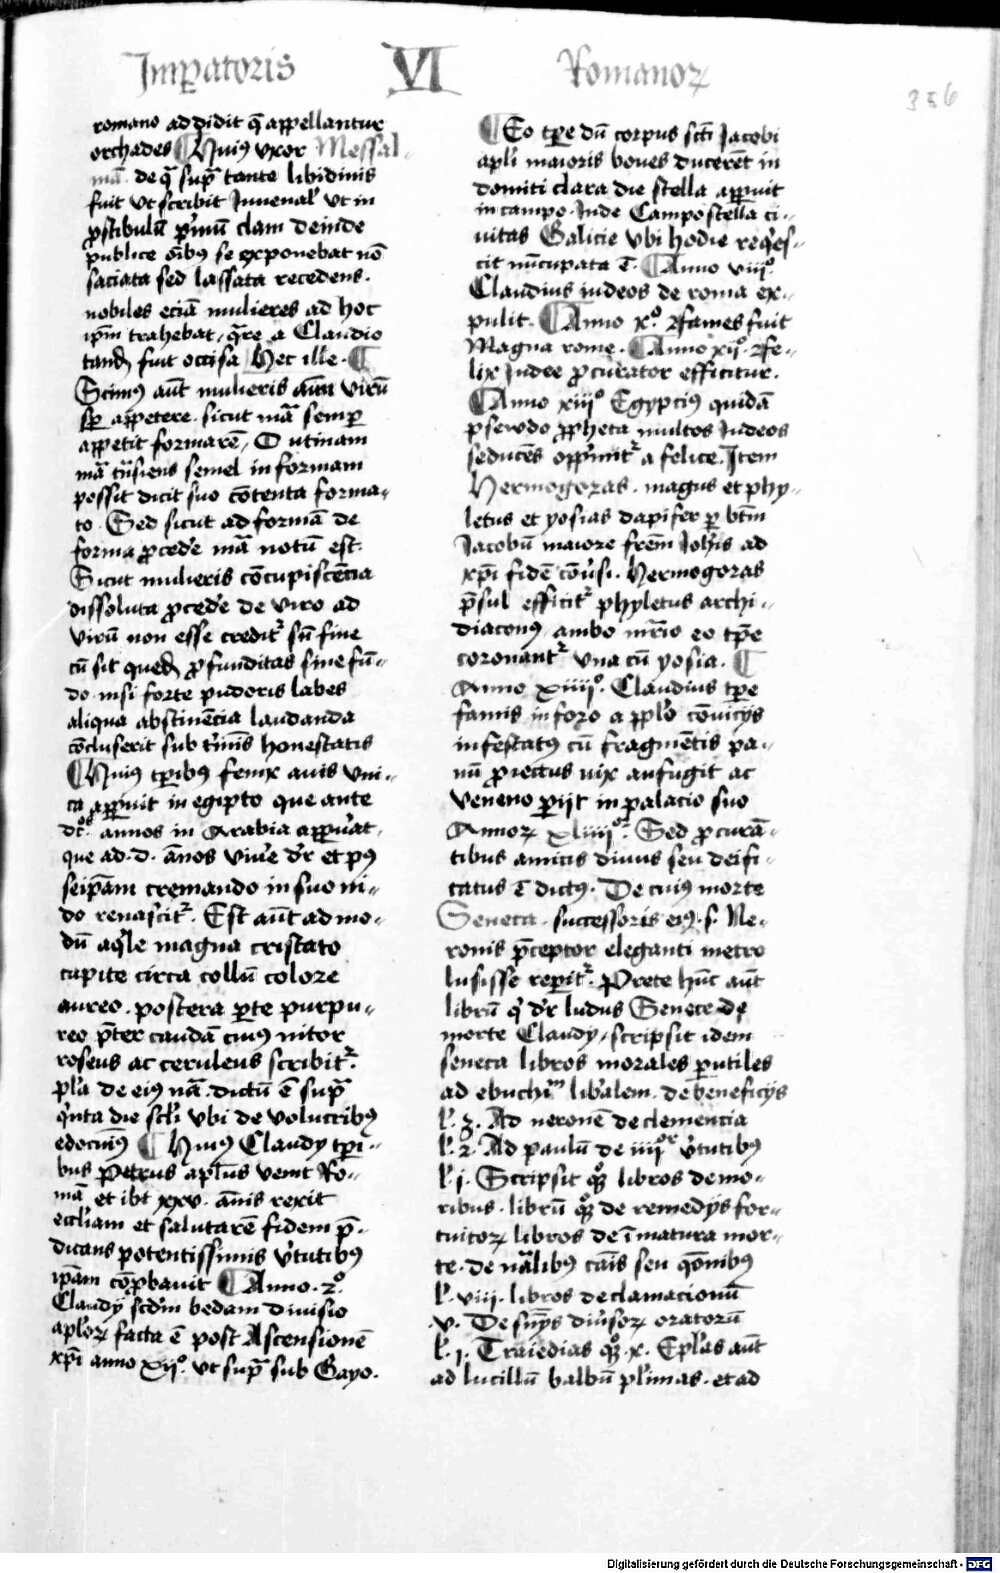 Imꝑatoris VI Romanoꝝ
356
romano addidit q̄ appellantur
orchades ¶ Huiꝰ uxor Messal-
mā. de qͣ supͣ tante libidinis
fuit ut scribit Juuenalˀ ut in
ꝓstibulū pͥmū clam deinde
publice oībꝰ se exponebat nō
saciata sed lassata recedens.
nobiles eciā mulieres ad hoc
ipm̄ trahebat, qͣre a Claudio
tandē fuit occisa Hec ille. ¶
Scimꝰ aūt mulieris aīm virū
sꝑ appetere. sicut mā semꝑ
appetit formarē, O utinam
mā tn̄siens semel in formam
possit dici suo cōtenta forma-
to. Sed sicut ad formā de
forma ꝓcedˀe mā notū est.
Sicut mulieris cōcupiscēcia
dissoluta ꝓcedˀe de viro ad
virū non esse creditˀ sn̄ fine
cū sit quedā ꝓfunditas sine fū-
do nisi forte pudoris labes
aliqua abstinēcia laudanda
cōcluserit sub tˀmīs honestatis
¶ Huiꝰ tꝑibꝰ fenix auis vni-
ca apparuit in egipto que ante
dc̄os annos in Arabia appuˀat,
que ad .d. ānos viuˀe dr̄ et pꝰ
seipam̄ cremando in suo ni-
do renascitˀ. Est aūt ad mo-
dū aqˀle magna cristato
capite circa collū colore
aureo. postera ꝑte purpu-
reo p̄ter caudā cuiꝰ nitor
roseus ac ceruleus scribitˀ.
plˀa de eiꝰ nā. dictū ē supͣ
qͥnta die sclˀi vbi de volucribꝰ
edocuimꝰ ¶ Huiꝰ Claudy tꝑi-
bus Petrus aplˀus venit Ro-
mā et ibi xxv. ānis rexit
eccliam et salutarē fidem p̄-
dicans potentissimis vˀtutibꝰ
ipam̄ cōꝓbauit ¶ Anno .2º.
Claudy scdˀm bedam diuisio
aplˀoꝝ facta ē post Ascensionē
xp̄i anno xijº. ut supͣ sub Gayo.
¶ Eo tꝑe dū corpus scti Jacobi
apli maioris boues ducerēt in
domiti clara die stella apparuit
in campo. Inde Campostella ci-
uitas Galicie vbi hodie reqˀes-
cit nūcupata ē. ¶ Anno viiiº.
Claudius iudeos de roma ex-
pulit. ¶ Anno xº. fames fuit
Magna rome. ¶ Anno xijº. fe-
lix Judee ꝓcurator efficitur.
¶ Anno xiiiº Egypciꝰ quidā
psewdo ꝓpheta multos Judeos
seducēs oppͥmitˀ a felice. Item
Hermogoras. magus et phy-
letus et yosias dapifer ꝑ btm̄
Jacobū maiorē frēm Johis ad
xp̄i fidē cōuˀsi. Hermogoras
p̄sul efficitˀ phyletus archi-
diaconꝰ, ambo mrˀio eo tꝑe
coronantˀ vna cū yosia. ¶
Anno xiiiiº. Claudius tꝑe
famis in foro a pplˀo cōuicijs
infestatꝰ cū fragmētis pa-
nū ꝓiectus uix aufugit ac
veneno ꝑijt in palacio suo
Annoꝝ xliiiiºˀ. Sed ꝓcurā-
tibus amicis diuus seu deifi-
catus ē dictꝰ. De cuiꝰ morte
Seneca. successoris eiꝰ .s. Ne-
ronis p̄ceptor eleganti metro
lusisse reꝑitˀ. Preter hūc aūt
librū qˀ dr̄ ludus Senece de
morte Claudy, scripsit idem
seneca libros morales ꝑutiles
ad ebuchiᵘᵐ libˀalem. de beneficijs
lˀ. 7. Ad neronē de clementia
lˀ. 2. Ad paulū de iiiiºʳ vˀtutibꝰ
lˀ. j. Scripsit qꝫ libros de mo-
ribus. librū qꝫ de remedijs for-
tuitoꝝ libros de īmatura mor-
te. de nālibꝰ cāis seu qōnibꝰ
lˀ. viii. libros declamacionū
.v. De sn̄ijs diuˀsoꝝ oratorū
lˀ. j. Traiedias qꝫ .x. Eplˀas aūt
ad lucillū balbū plˀimas. et ad